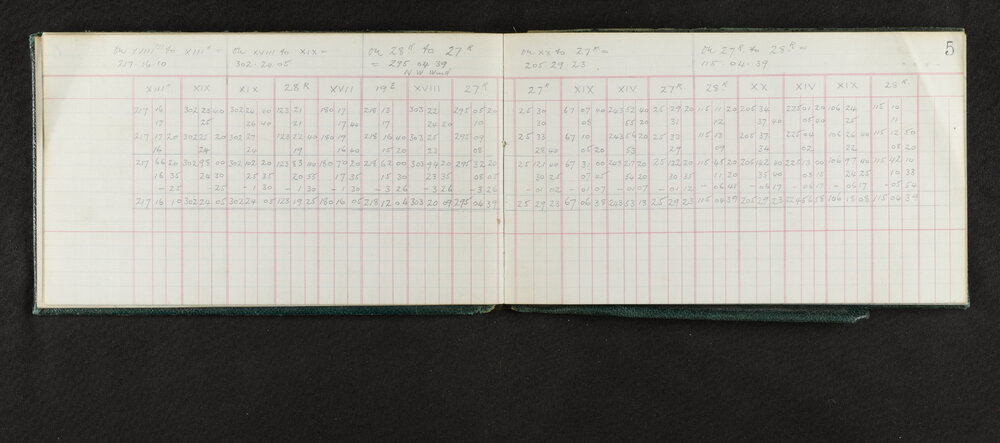 on XVIII to XIII = on XVIII to XIX = on 28 R to 27 R
217.16.10 302.24.05 = 295 04 39
N W Wind
XIII XIX XIX 28 R XVII 19 E XVIII 27 R
217 16 302 23 40 302 26 40 123 21 180 17 218 13 303 22 295 05 20
17 25 26 40 17 40 17 24 20 10
217 17 20 302 25 20 302 27 123 22 40 180 19 218 16 40 303 25 295 09
16 24 24 19 16 40 15 20 23 08
217 66 20 302 98 00 302 102 20 123 83 00 180 70 20 218 62 00 303 94 20 295 32 20
16 35 24 30 25 35 20 55 17 35 15 30 23 35 08 05
- 25 - 25 - 1 30 - 1 30 - 1 30 - 3 26 - 3 26 - 3 26
217 16 10 302 24 05 302 24 05 123 19 25 180 16 05 218 12 04 303 20 09 295 04 39
5
on XX to 27 R = on 27 R to 28 R =
205 29 23 115.04.39
27 R XIX XIV 27 R 28 R XX XIV XIX 28 R
25 30 67 07 40 243 52 40 25 29 20 115 11 20 205 34 225 01 20 106 24 115 10
30 08 55 20 31 12 37 40 05 40 25 11
25 33 67 10 243 56 20 25 33 115 13 205 37 225 04 106 26 40 115 12 50
28 40 05 20 53 29 09 34 02 22 08 20
25 121 40 67 31 00 25 122 20 115 45 20 205 142 40 225 13 00 106 97 40 115 42 10
30 25 07 45 54 20 30 35 11 20 35 40 03 15 24 25 10 33
- 01 02 - 01 07 - 01 07 - 01 12 - 06 41 - 06 17 - 06 17 - 06 17 - 05 54
25 29 23 67 06 38 243 53 13 25 29 23 115 04 39 205 29 23 224 56 58 106 18 08 115 04 39